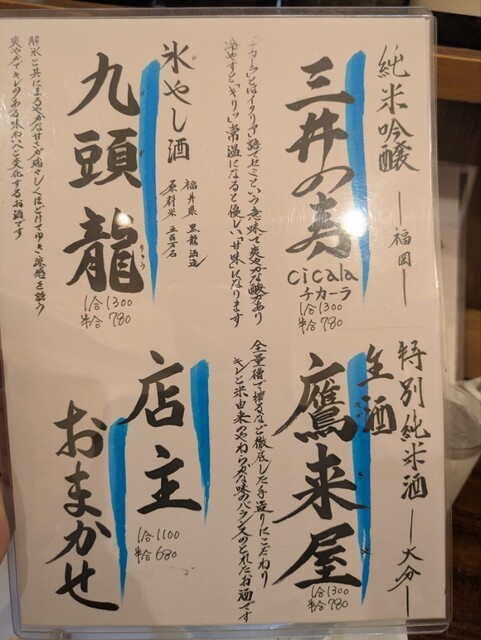 純米吟醸
―福岡―
三井の寿
cicala
チカーラ
1合1300
半合780
「チカーラ」とはイタリア語でセミという意味で爽やかな酸があり
冷やすと「キリッ」常温になると優しい「甘味」になります
氷やし酒
福井県 黒龍酒造
原料米 五百万石
九頭龍
りゅう
1合1300
半合780
解氷と共にまろやかな甘さが瑞々しくほどけてゆき涼感を誘う
爽やかでキレのある味わいへと変化するお酒です
特別純米酒
―大分―
生酒
鷹来屋
1合1300
半合780
全量槽で搾るなど徹底した手造りにこだわり
キレと米由来のやわらかな味のバランスのとれたお酒です
店主
おまかせ
1合1100
半合680